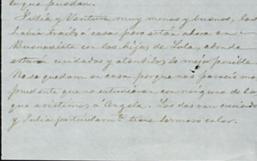 que puedan.
Julia y Ventura muy monas y buenas, las
habia traido a casa pero están ahora en
Buenavista con las hijas de Lola, donde
estarán cuidadas y atendidas lo mejor posible
No se quedan en casa porque nos pareció mas
prudente que no estuvieran con ninguna de las
que asistimos a Angela. Las dos van creciendo
y Julia particularmte tiene hermoso color.